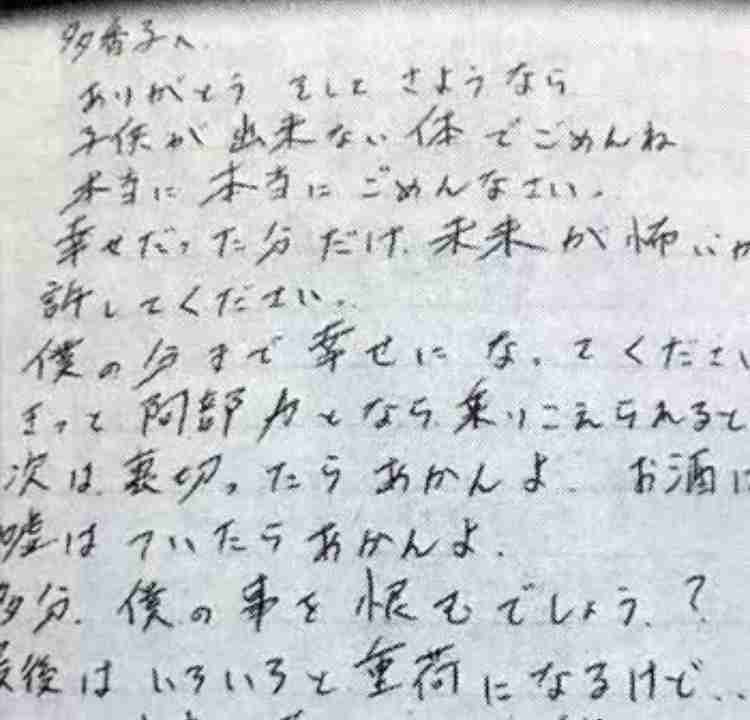 多香子へ
ありがとう そして さようなら
子供が 出来ない 体 で ごめんね
本当に 本当に ごめんなさい。
幸せだった分 だけ 未来 が 怖いか
許してください。
僕の分まで 幸せに なってください
きっと 阿部力となら 乗りこえられると
次は 裏切ったら あかんよ お酒に
嘘は ついたら あかんよ。
多分 僕の事を 恨むでしょう？
最後は いろいろと 重荷になるけど..